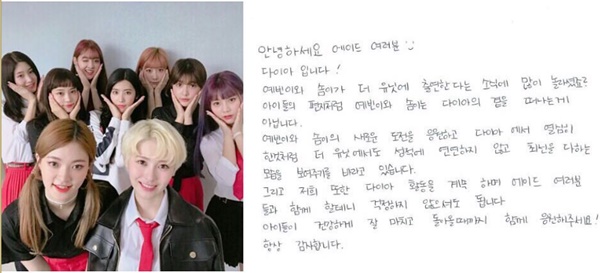 안녕하세요 에이드 여러분 :)
다이아 입니다!
예빈이와 솜이가 더 유닛에 출연한다는 소식에 많이 놀라셨죠?
아이들의 편지처럼 예빈이와 솜이는 다이아의 곁을 떠나는게
아닙니다.
예빈이와 솜이의 새로운 도전을 응원하고 다이아에서 열심히
한것처럼 더 유닛에서도 성적에 연연하지 않고 최선을 다하는
모습 보여주기를 바라고 있습니다.
그리고 저희 또한 다이아 활동을 계속 하며 에이드 여러분
들과 함께 할테니 걱정하지 않으셔도 됩니다
아이들이 건강하게 잘 마치고 돌아올때까지 함께 응원해주세요!
항상 감사합니다.